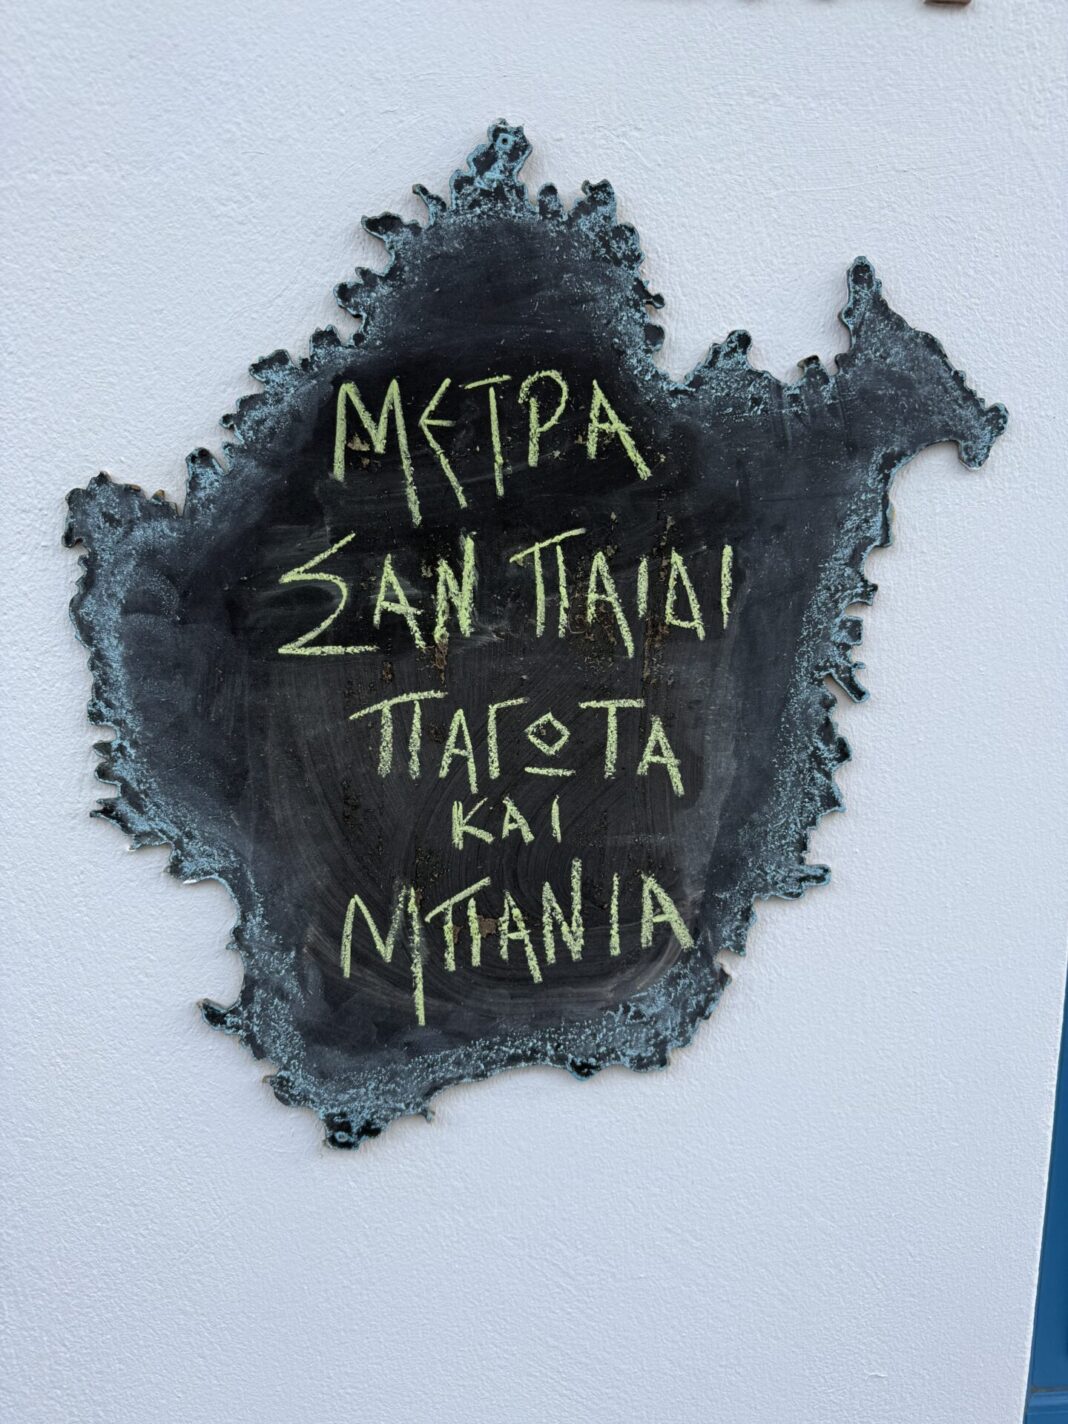 ΜΕΤΡΑ
ΣΑΝ ΠΑΙΔΙ
ΠΑΓΟΤΑ
ΚΑΙ
ΜΠΑΝΙΑ